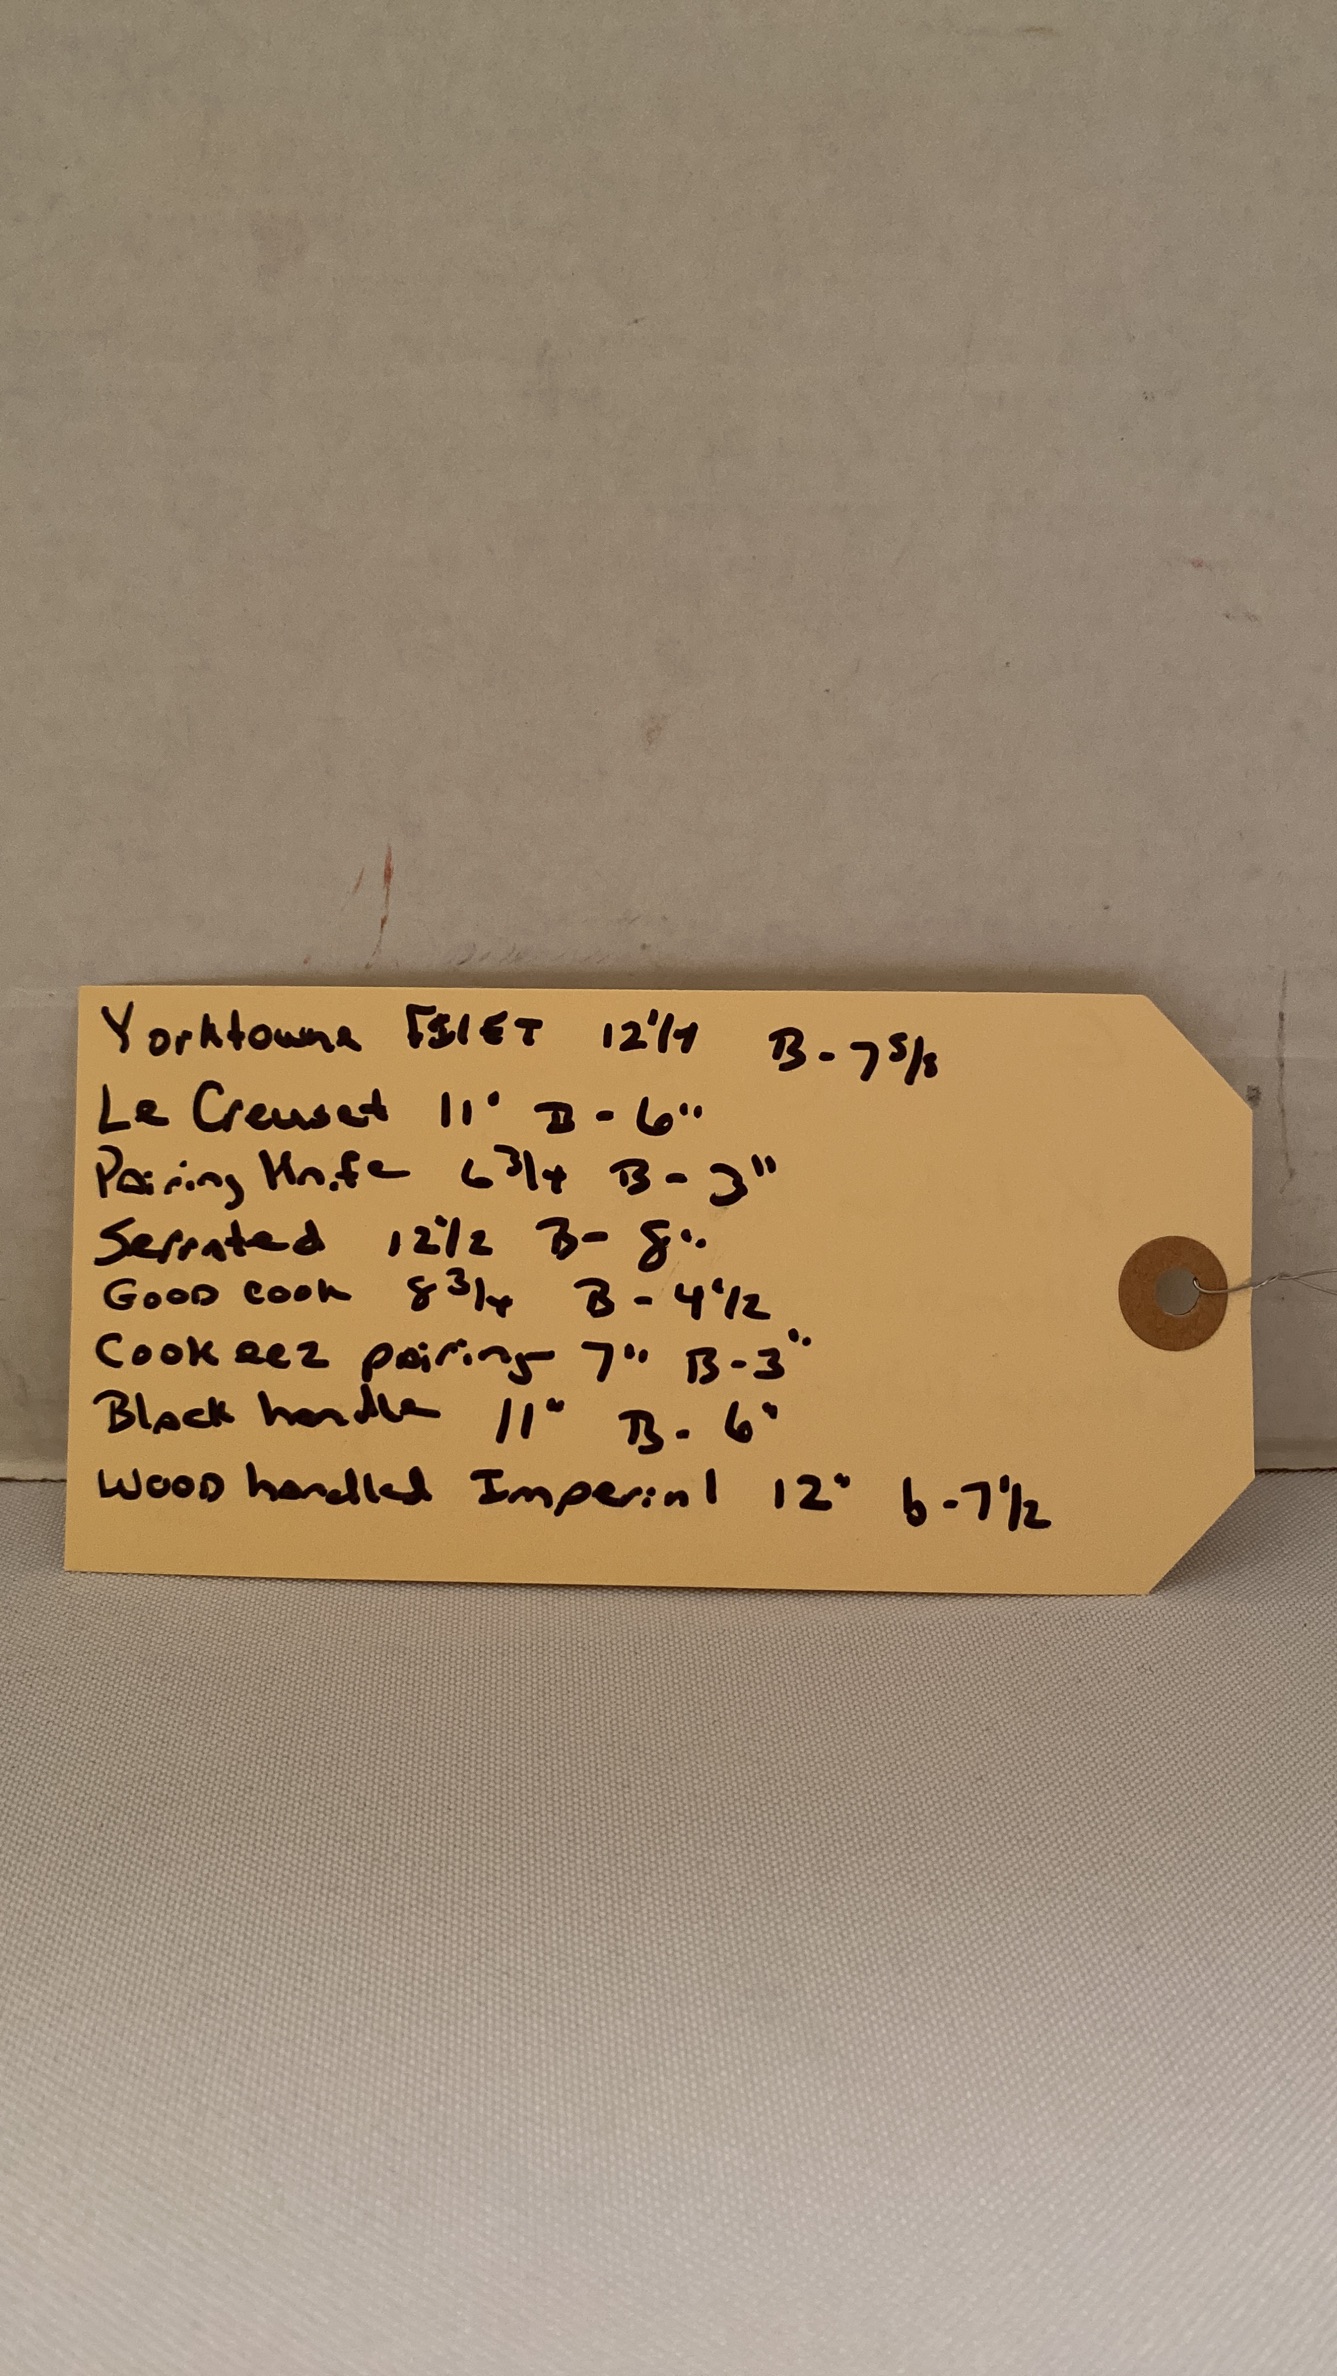 Yorktowne FILET 12 1/4 B - 7 5/8
Le Creuset 11" B - 6"
Pairing Knife 6 3/4 B - 3"
Serrated 12 1/2 B - 8"
GOOD COOK 8 3/4 B - 4 1/2
Cook eez pairing 7" B - 3"
Black handle 11" B - 6"
WOOD handled Imperial 12" b - 7 1/2